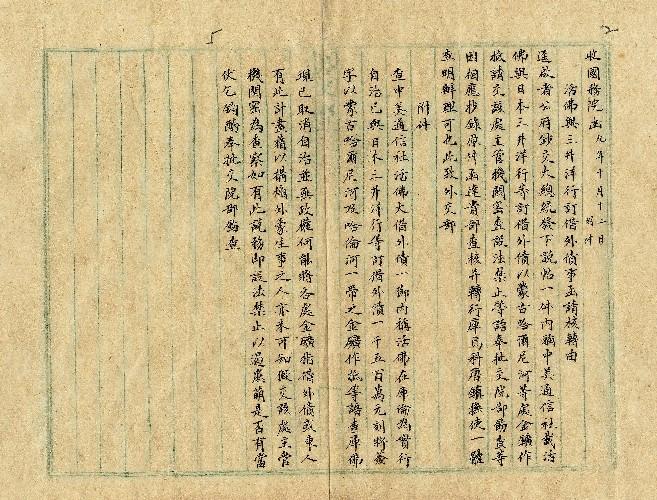 收國務院函 九年十月十二日
活佛與三井洋行訂借外債事函請核轉由
逕啟者公府鈔交大總統發下說帖一件內稱中美通信社載活
佛與日本三井洋行等訂借外債以蒙古哈爾尼河等處金鑛作
抵請交該處主管機關密查設法禁止等語奉批交院部籌查等
因相應抄錄原件函達貴部查核并轉行庫烏科唐鎮撫使一體
查明辦理可也此致外交部
附件
查中美通信社活佛大借外債一御內稱活佛在庫倫為實行
自治已與日本三井洋行等訂借外債一千五百萬元刻將簽
字以蒙古哈爾尼河及哈倫河一帶之金鑛作抵等語查庫佛
現已取消自治並無政權何能將各處金鑛抵借外債或東人
有此計畫藉以搆煽外蒙生事之人亦未可知擬交該處主管
機關密為查察如有此說務即設法禁止以遏亂萌是否有當
伏乞鈞酌奉批交院部籌查
5
2